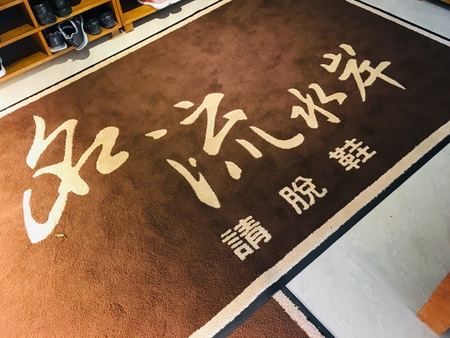 名流水岸
請脫鞋